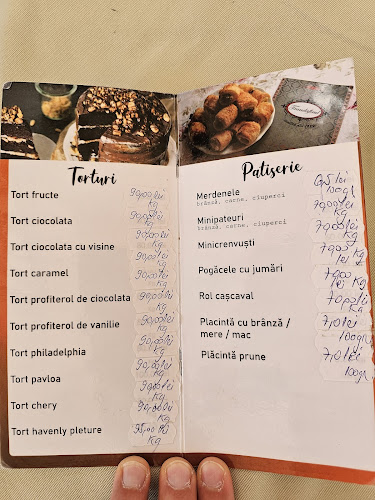 Torturi
Tort fructe 90,00 lei kg
Tort ciocolata 90,00 lei kg
Tort ciocolata cu visine 90,00 lei kg
Tort caramel 90,00 lei kg
Tort profiterol de ciocolata 90,00 lei kg
Tort profiterol de vanilie 90,00 lei kg
Tort philadelphia 90,00 lei kg
Tort pavloa 90,00 lei kg
Tort chery 90,00 lei kg
Tort havenly pleture 95,00 lei kg
Patiserie
Merdenele lei 100g
brânză, carne, ciuperci
Minipateuri 70,00 lei kg
brânză, carne, ciuperci
Minicrenvuști 70,00 lei kg
Pogăcele cu jumări lei kg
Rol cașcaval 70,00 lei kg
Placintă cu brânză / 7,0 lei
mere / mac 100gr
Plăcintă prune 7,0 lei
100gr